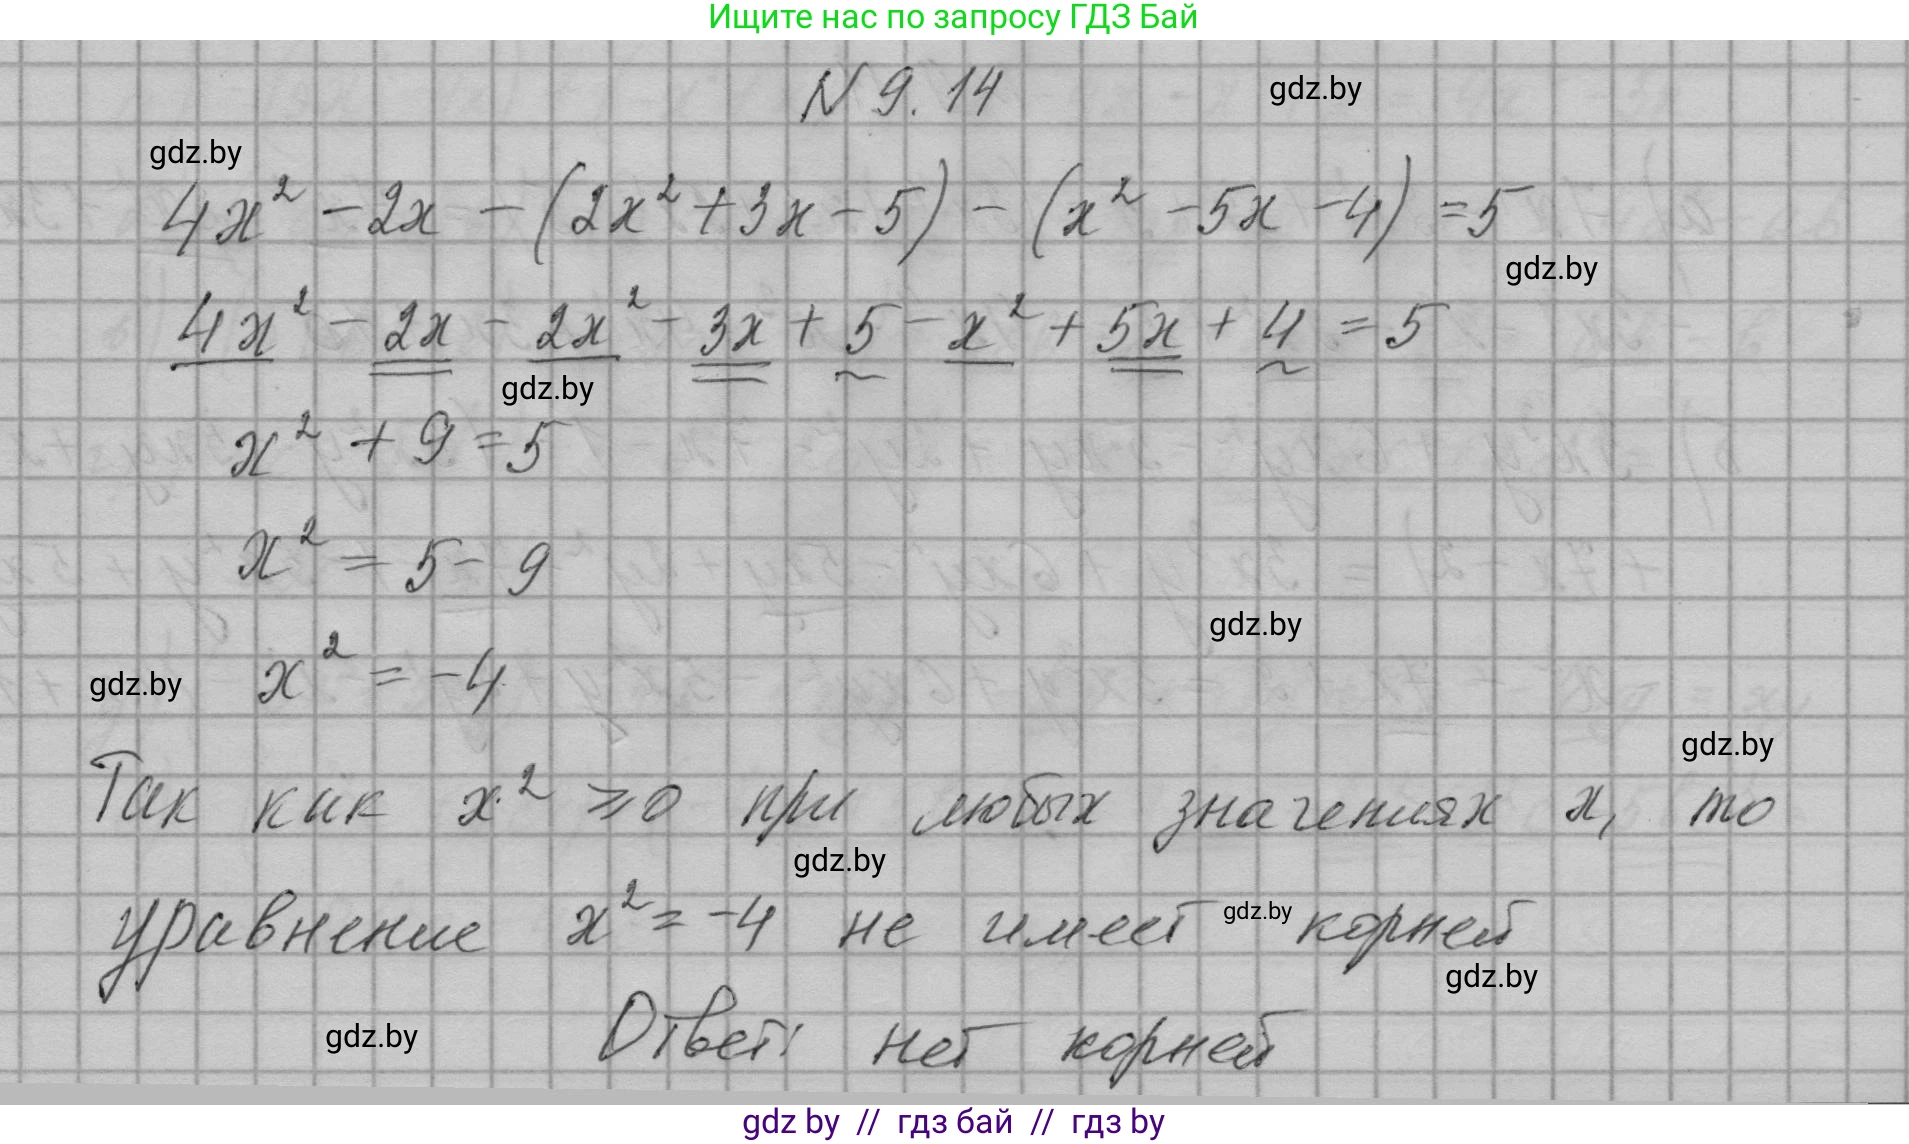 Ищите нас по запросу ГДЗ Бай
N 9.14
gdz.by
gdz.by
4x² - 2x - (2x² + 3x - 5) - (x² - 5x - 4) = 5
gdz.by
4x² - 2x - 2x² - 3x + 5 - x² + 5x + 4 = 5
gdz.by
x² + 9 = 5
x² = 5 - 9
gdz.by
x² = -4
gdz.by
gdz.by
Так как x² ⩾ 0 при любых значениях x, то
gdz.by
уравнение x² = -4 не имеет корней
gdz.by
gdz.by
gdz.by
Ответ: нет корней
gdz by // гдз бай // гдз by